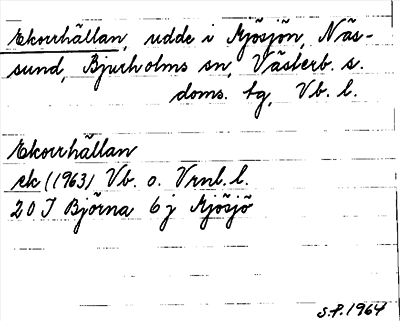 Ekorrhällan, udde i Mjösjön, Näs-
sund, Bjurholms sn, Västerb. s.
doms. tg, Vb. l.
Ekorrhällan
ek (1963) Vb. o. Vrnl. l.
20 I Björna 6 j Mjösjö
S.P. 1964